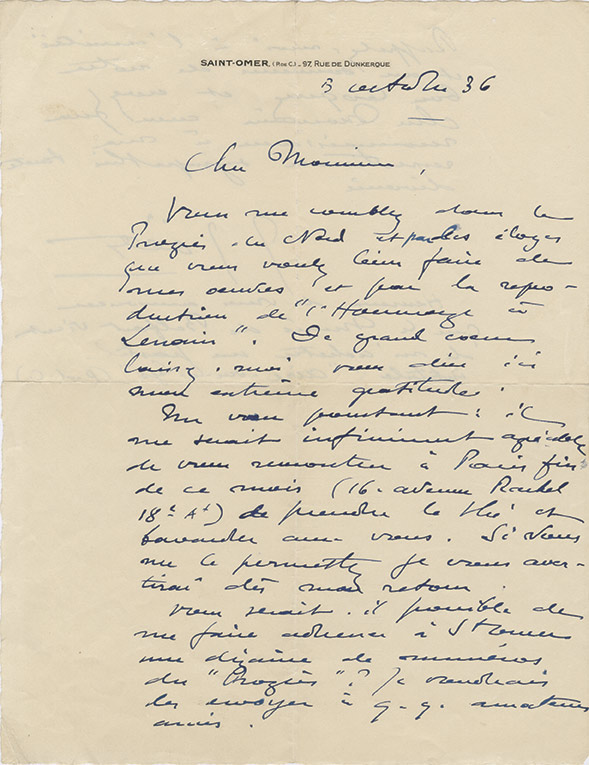 SAINT-OMER, (P. DE C.) - 97, RUE DE DUNKERQUE
3 octobre 36
Cher Monsieur,
Vous me comblez dans le
Progrès du Nord et par les éloges
que vous voulez bien faire de
mes oeuvres et par la repro-
duction de "l'Hommage à
Lenoir". De grand coeur
laissez-moi vous dire ici
mon extrême gratitude.
Un voeu pourtant : il
me serait infiniment agréable
de vous rencontrer à Paris fin
de ce mois (16 - avenue Rachel
18e At) de prendre le thé et
bavarder avec vous. Si vous
me le permettez je vous aver-
tirai dès mon retour.
Vous serait-il possible de
me faire adresser à St Omer
une dizaine de numéros
du "Progrès"? Je voudrais
les envoyer à q.q. amateurs
amis.